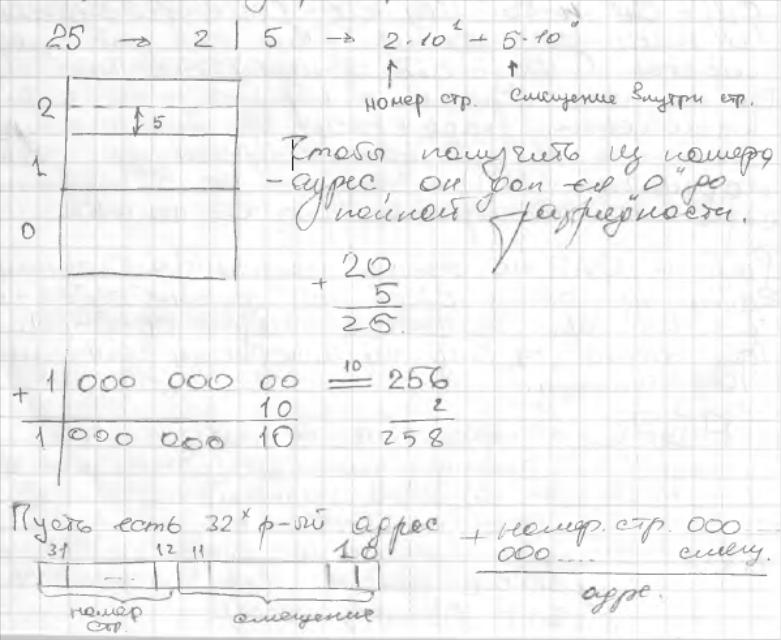 25 → 2 | 5 → 2·10¹ + 5·10⁰
номер стр. смещение внутри стр.
2
5
1
0
Чтобы получить из номера
- адрес, он доп-ся "0" до
полной разрядности.
+ 20
5
25.
+ 1 | 000 000 00 =10= 256
10 2
1 | 000 000 10 258
Пусть есть 32х р-ый адрес
31 12 11 1 0
номер стр.
смещение
+ номер. стр. 000...
000.... смещ.
адре.